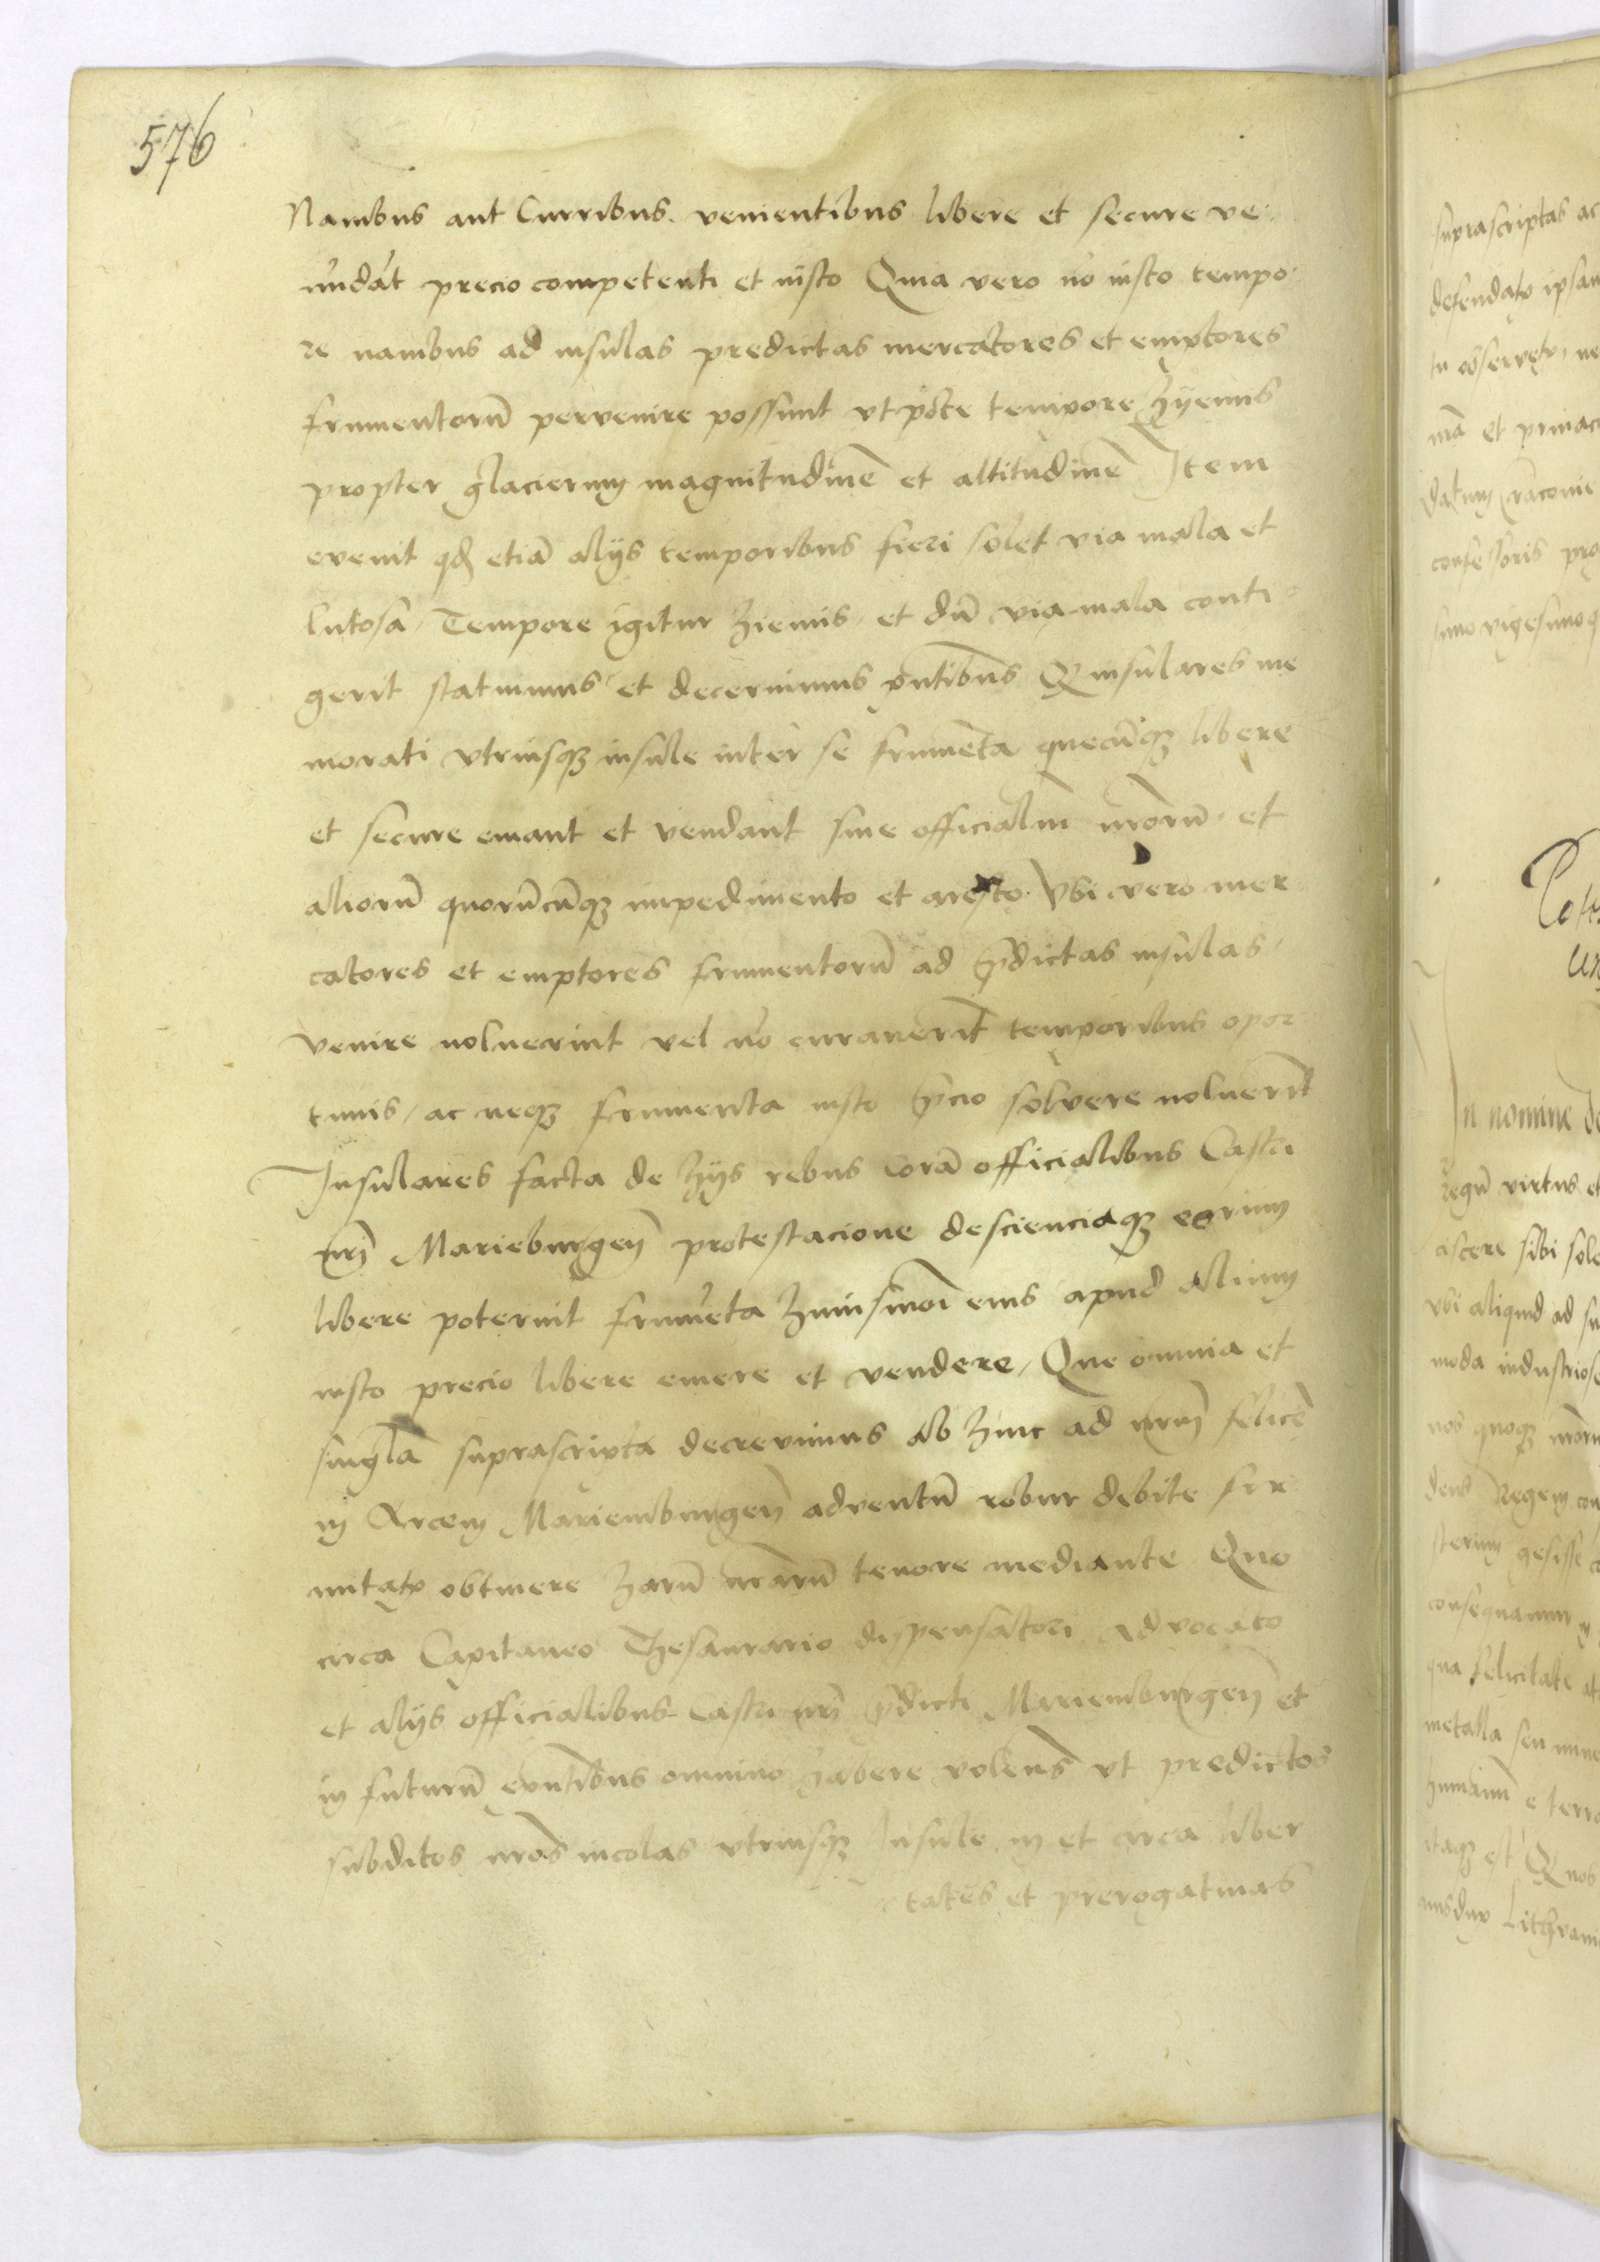 576
Nauibus aut Curribus. venientibus libere et secure ve
nūdāt precio competenti et iusto Quia vero nō iusto tempo
re nauibus ad insulas predictas mercatores et emptores
frumentorū pervenire possunt vt pōte tempore hyemis
propter glacierum magnitudinē et altitudinē Item
evenit qđ etiā alijs temporibus fieri solet via mala et
lutosa, Tempore igitur hiemis, et dū via mala conti
gerit statuimus et decernimus pn̄tibus Q insulares me
morati vtriusqȝ insule inter se frumēta quecūqȝ libere
et secure emant et vendant sine officialiū nr̄orū et
aliorū quorūcūqȝ impedimento et aresto. Vbi vero mer
catores et emptores frumentorū ad p̄dictas insulas
venire noluerint vel nō curauerīt temporibus opor
tunis, ac neqȝ frumenta iusto p̄cio solvere noluerīt
Insulares facta de hijs rebus corā officialibus Castri
nr̄i Marieburgeñ protestacione descienciaqȝ eorum
libere poterint frumēta huiusmōi eius apud Alium
iusto precio libere emere et vendere, Que omnia et
singl̄a suprascripta decrevimus ab hinc ad nr̄m felicē
in Arcem Mariemburgeñ adventū robur debite fir
mitatis obtinere harū nr̄arū tenore mediante Quo
circa Capitaneo Thesaurario dispensatori Advocato
et alijs officialibus Castri nr̄i p̄dicti Mariemburgeñ et
in futurū exn̄tibus omnino habere volens vt predictos
subditos nr̄os incolas vtriusqȝ Insule in et circa liber
tates et prerogatiuas
suprascriptas ac
confessoris pro
In nomine
regū virtus et
ciscere sibi sole
vbi aliquid ad su
moda industriose
nos quoqȝ
dens Regem con
sterium gesisse
consequamur
qua felicitate
metalla seu
humanū e terra
itaqȝ est Quos